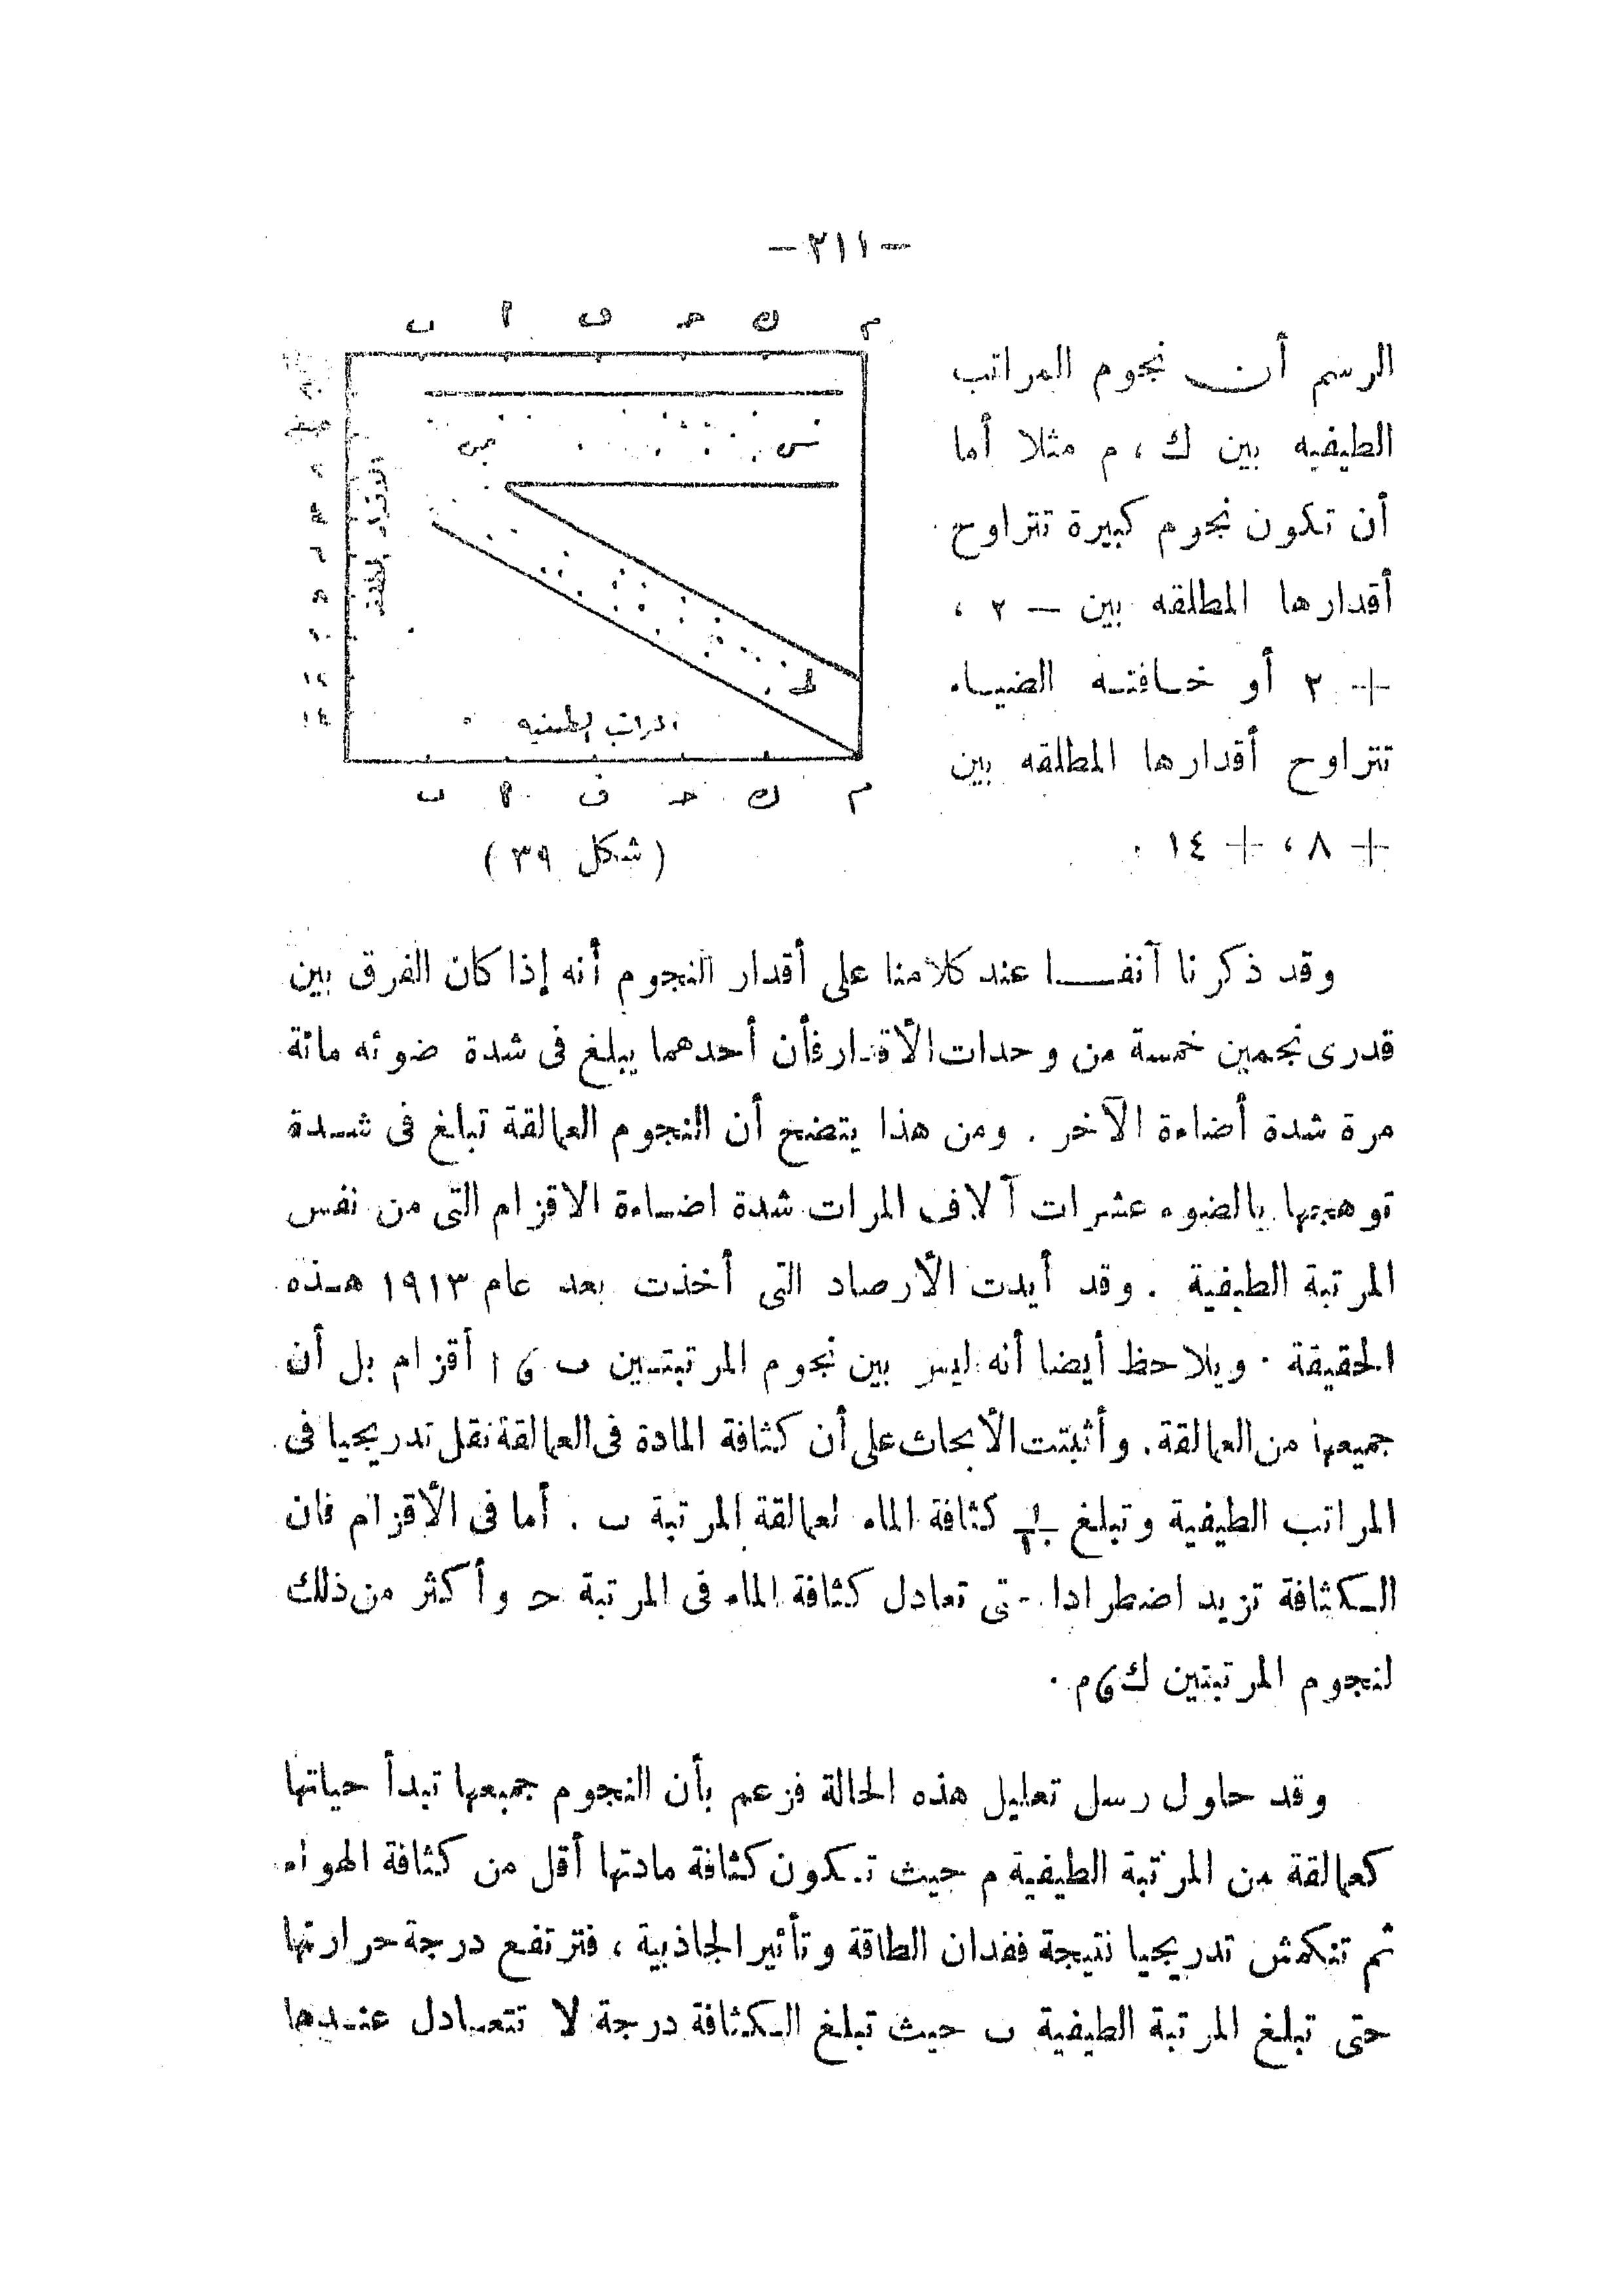 — ٢١١ —
ب ا ف ح ك م
الرسم أن نجوم المراتب
الطيفيه بين ك ، م مثلا أما
أن تكون نجوم كبيرة تتراوح
أقدارها المطلقه بين — ٢ ،
+ ٢ أو خافته الضياء
تتراوح أقدارها المطلقه بين
+ ٨ ، + ١٤ .
صفر
٦
٨
١٠
١٢
١٤
س
ط
المراتب الطيفيه
ب ا ف ح ك م
( شكل ٣٩ )
وقد ذكرنا آنفا عند كلامنا على أقدار النجوم أنه إذا كان الفرق بين
قدرى نجمين خمسة من وحدات الأقدار فأن أحدهما يبلغ فى شدة ضوئه مائة
مرة شدة أضاءة الآخر . ومن هذا يتضح أن النجوم العمالقة تبلغ فى شدة
توهجها بالضوء عشرات آلاف المرات شدة اضاءة الاقزام التى من نفس
المرتبة الطيفية . وقد أيدت الأرصاد التى أخذت بعد عام ١٩١٣ هذه
الحقيقة . ويلاحظ أيضا أنه ليس بين نجوم المرتبتين ب ، ا أقزام بل أن
جميعها من العمالقة . وأثبتت الأبحاث على أن كثافة المادة فى العمالقة تقل تدريجيا فى
المراتب الطيفية وتبلغ كثافة الماء لعمالقة المرتبة ب . أما فى الأقزام فان
الكثافة تزيد اضطرادا حتى تعادل كثافة الماء فى المرتبة ح وأكثر من ذلك
لنجوم المرتبتين ك ، م .
وقد حاول رسل تعليل هذه الحالة فزعم بأن النجوم جميعها تبدأ حياتها
كعمالقة من المرتبة الطيفية م حيث تكون كثافة مادتها أقل من كثافة الهواء
ثم تنكمش تدريجيا نتيجة فقدان الطاقة وتأثير الجاذبية ، فترتفع درجة حرارتها
حتى تبلغ المرتبة الطيفية ب حيث تبلغ الكثافة درجة لا تتعادل عندها